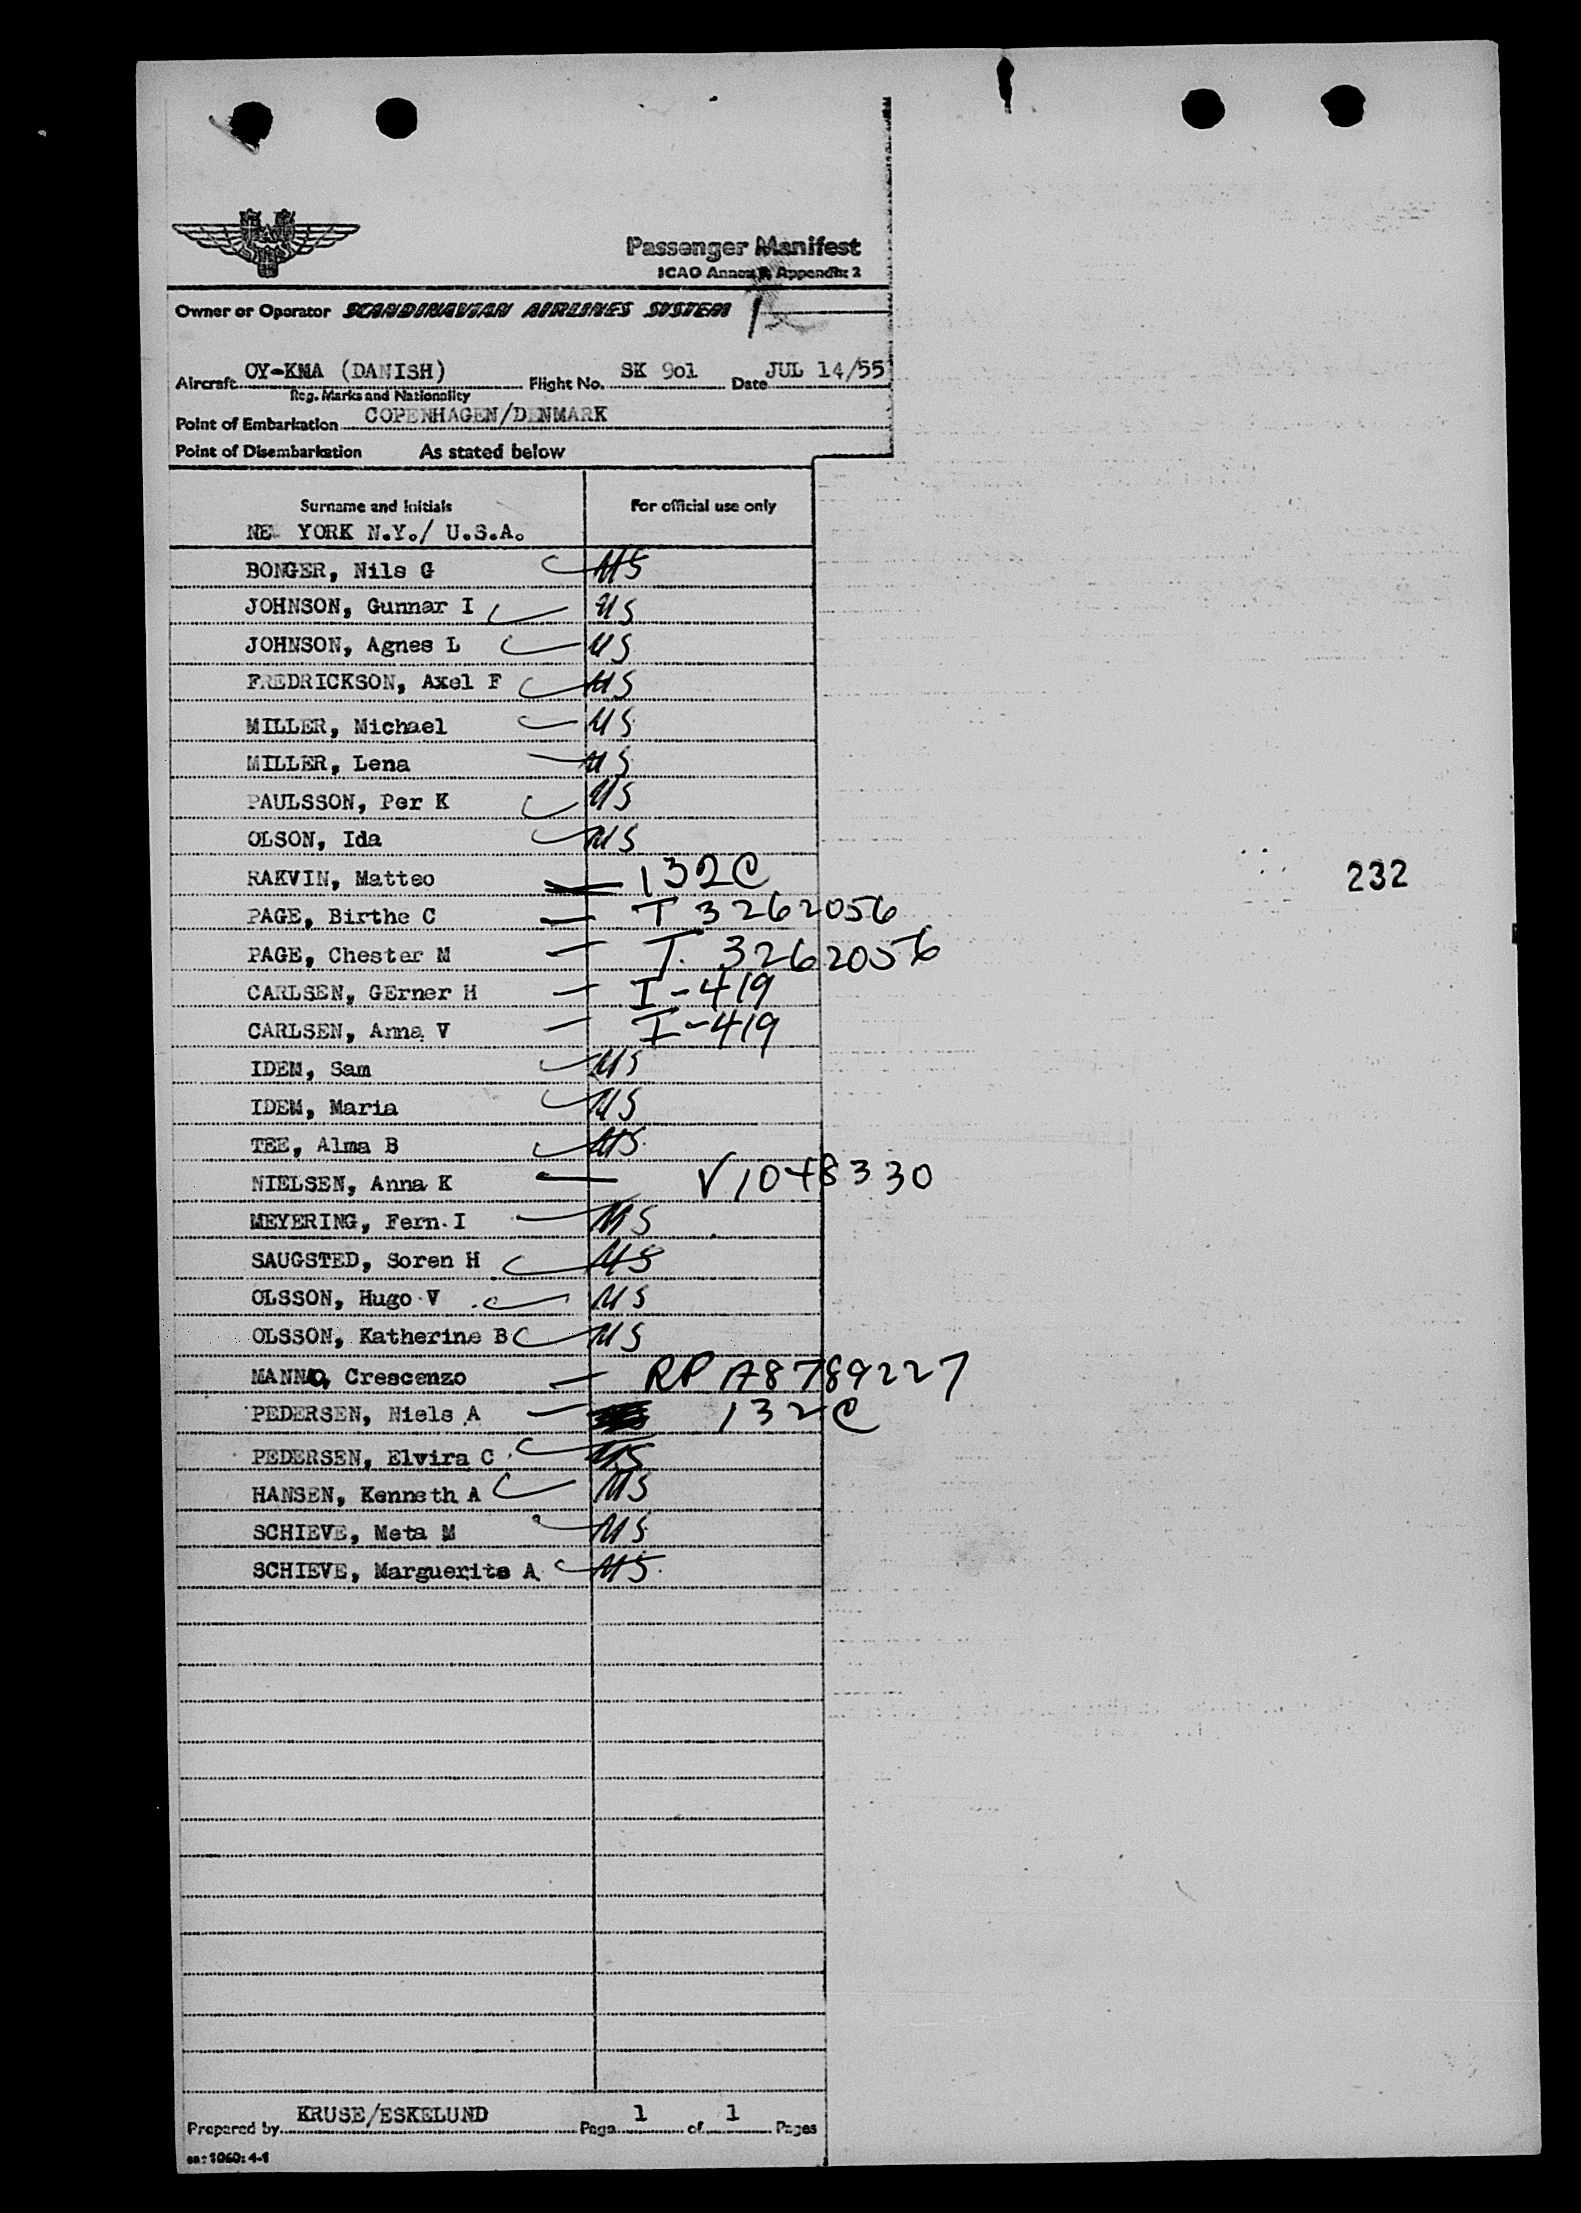 Passenger Manifest
ICAO Annex 9, Appendix 2
Owner or Operator SCANDINAVIAN AIRLINES SYSTEM 1
Aircraft OY-KMA (DANISH) Flight No. SK 901 Date JUL 14/55
Reg. Marks and Nationality
Point of Embarkation COPENHAGEN/DENMARK
Point of Disembarkation As stated below
Surname and Initials For official use only
NEW YORK N.Y./ U.S.A.
BONGER, Nils G US
JOHNSON, Gunnar I US
JOHNSON, Agnes L US
FREDRICKSON, Axel F US
MILLER, Michael US
MILLER, Lena US
PAULSSON, Per K US
OLSON, Ida US
RAKVIN, Matteo 132C
232
PAGE, Birthe C T 3262056
PAGE, Chester M T. 3262056
CARLSEN, GErner H I-419
CARLSEN, Anna V I-419
IDEM, Sam US
IDEM, Maria US
TEE, Alma B US
NIELSEN, Anna K V1048330
MEYERING, Fern I US
SAUGSTED, Soren H US
OLSSON, Hugo V US
OLSSON, Katherine B US
MANNO, Crescenzo RP A8789227
PEDERSEN, Niels A 132C
PEDERSEN, Elvira C US
HANSEN, Kenneth A US
SCHIEVE, Meta M US
SCHIEVE, Marguerite A US
Prepared by KRUSE/ESKELUND Page 1 of 1 Pages
1060: 4-1